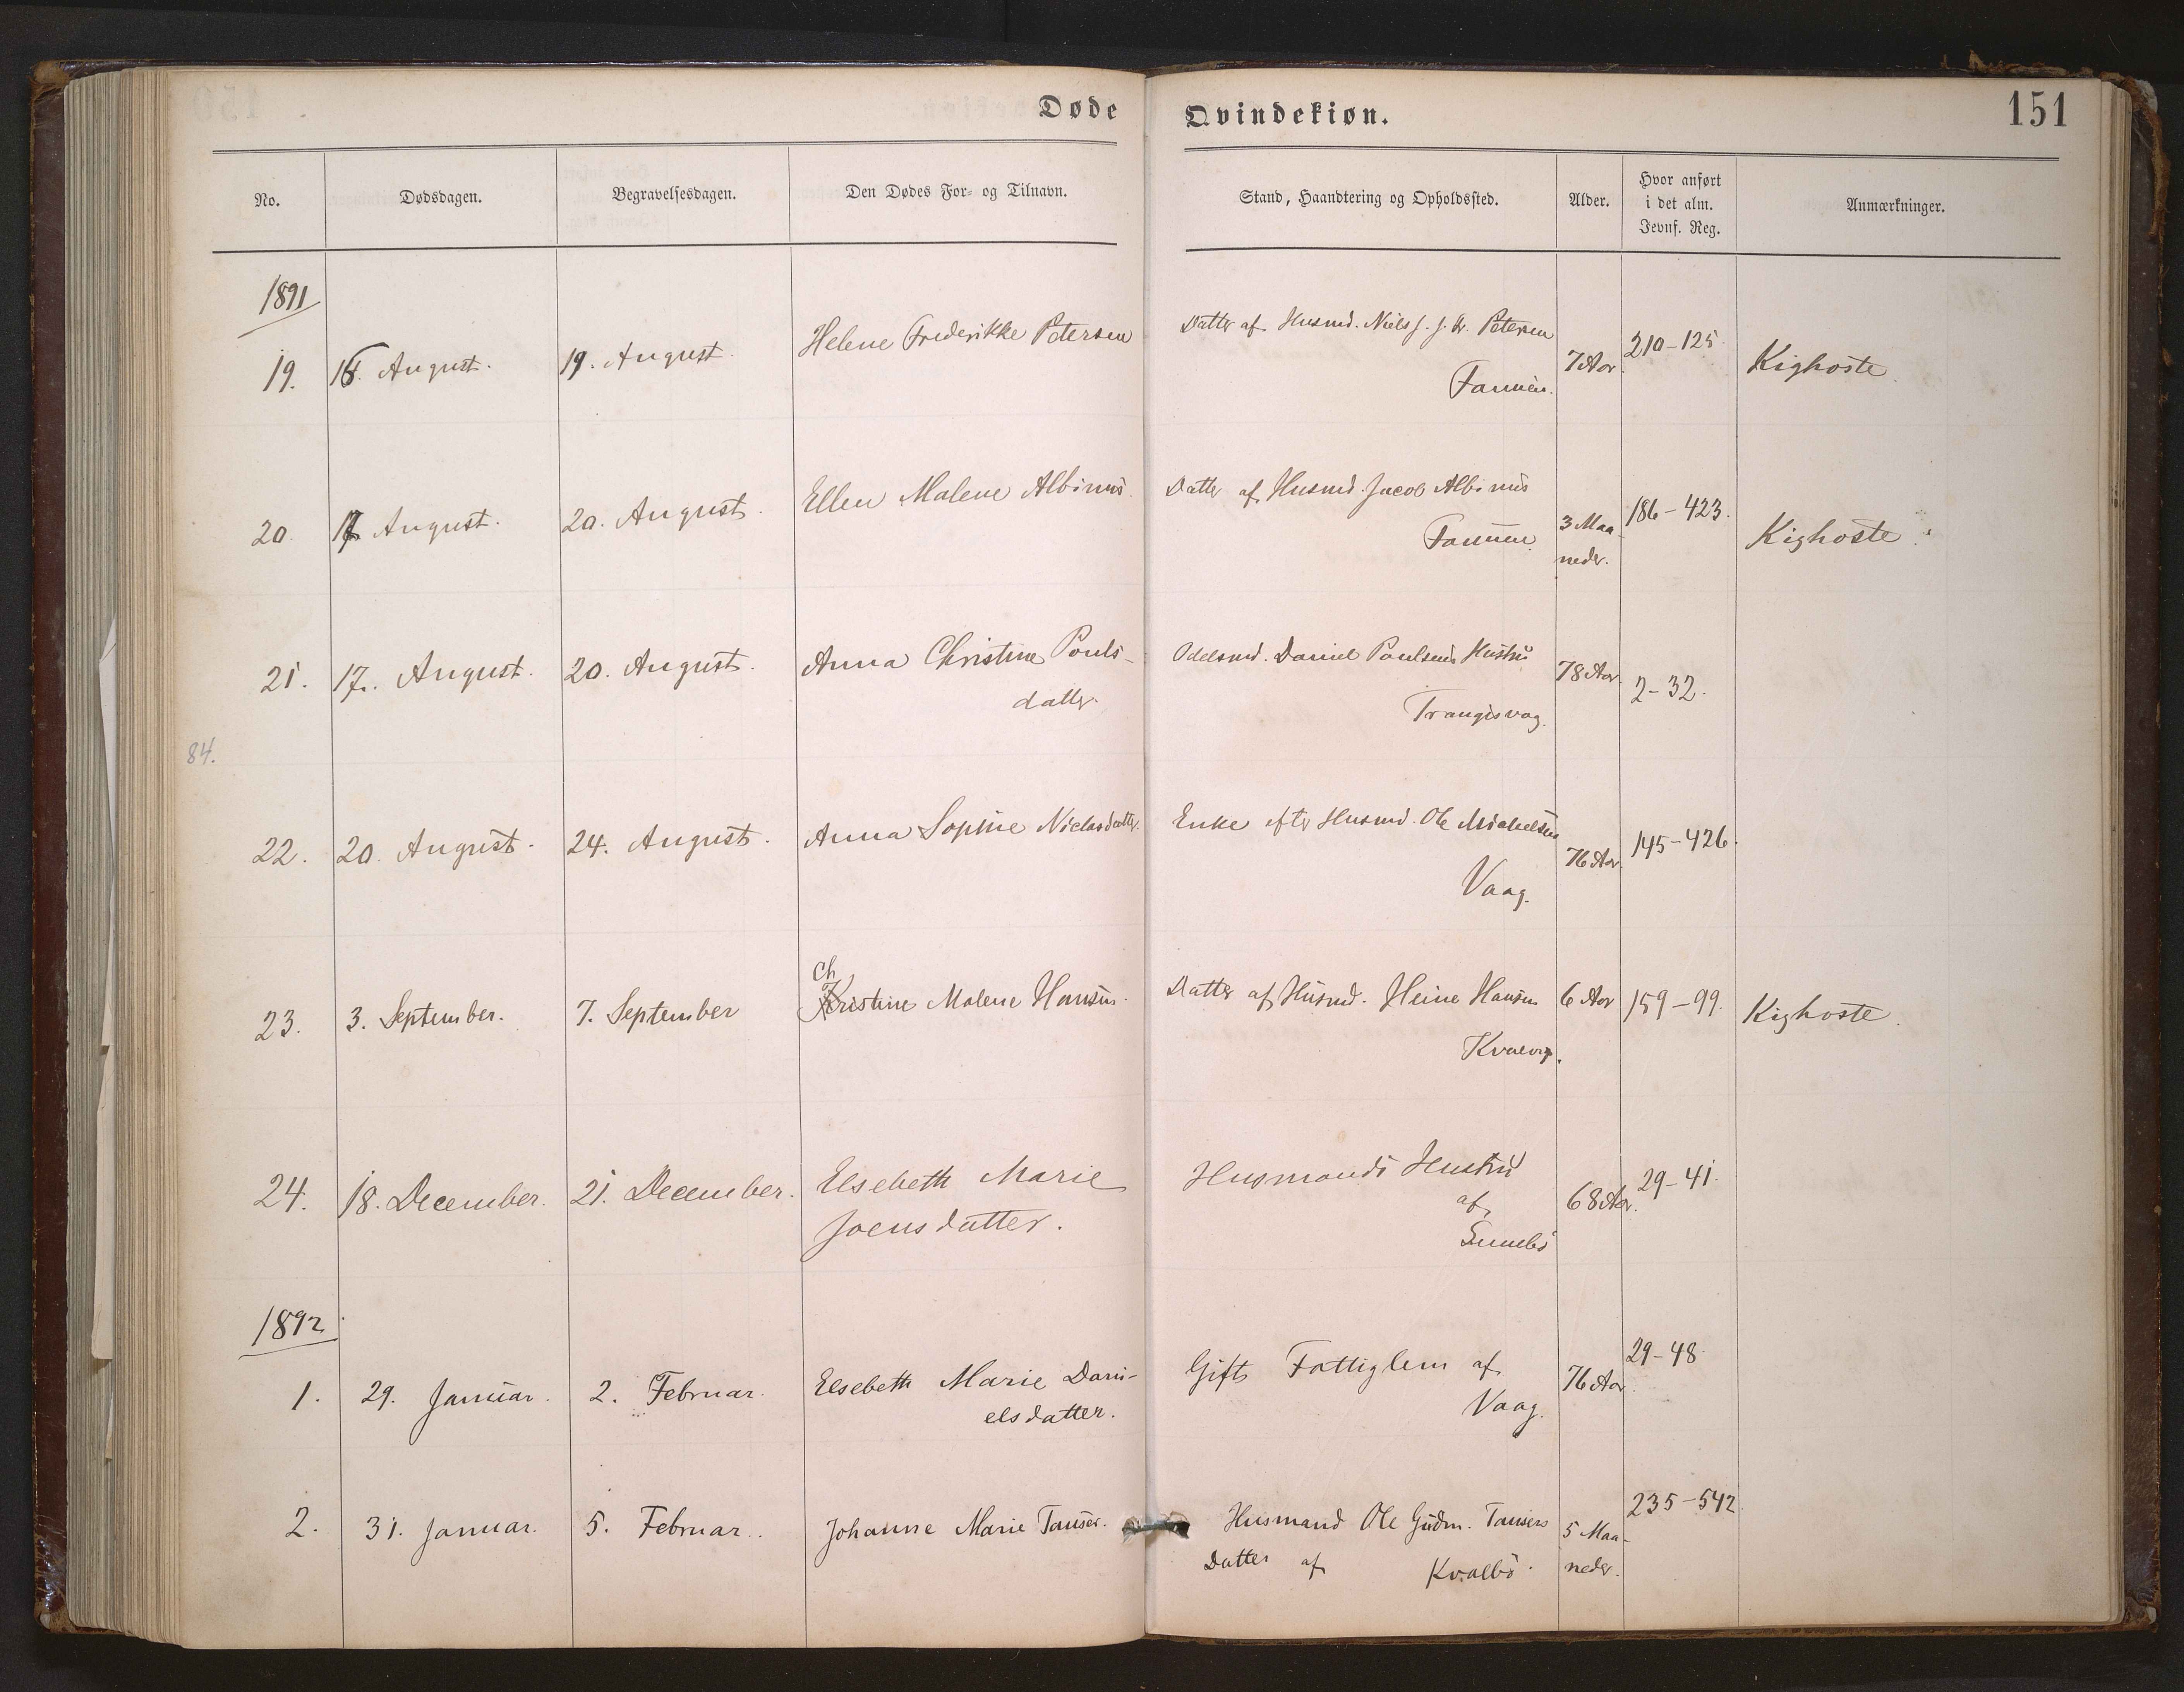 Døde
Qvindekiøn.
151
No.
Dødsdagen.
Begravelsesdagen.
Den Dødes For- og Tilnavn.
Stand, Haandtering og Opholdssted.
Alder.
Hvor anført
i det alm.
Jevnf. Reg.
Anmærkninger.
1891
19. 16. August. 19. August. Helene Frederikke Petersen Datter af Husmd. Niels J. J. Petersen 7 Aar 210-125. Kighoste.
Famien.
20. 17. August. 20. August. Ellen Malene Albinus. Datter af Husmd. Jacob Albinus 3 Maa- 186-423. Kighoste.
Famien. neder.
21. 17. August. 20. August. Anna Christine Pouls- Odelsmd. Daniel Poulsens Hustru 78 Aar. 2-32.
datter. Trangisvaag.
84.
22. 20. August. 24. August. Anna Sophie Niclasdatter. Enke efter Husmd. Ole Michelsen 76 Aar. 145-426.
Vaag.
Ch
23. 3. September. 7. September Kristine Malene Hansen. Datter af Husmd. Heine Hansen 6 Aar 159-99. Kighoste.
24. 18. December. 21. December. Elsebeth Marie Husmands Hustru 68 Aar. 29-41.
Joensdatter. af
Sumbö
1892
1. 29. Januar. 2. Februar. Elsebeth Marie Dani- Gift Fattiglem af 76 Aar. 29-48
elsdatter. Vaag.
2. 31. Januar. 5. Februar. Johanne Marie Tausen. Husmand Ole Gudm. Tausens 5 Maa- 235-542.
Datter af Kvalbö. neder.